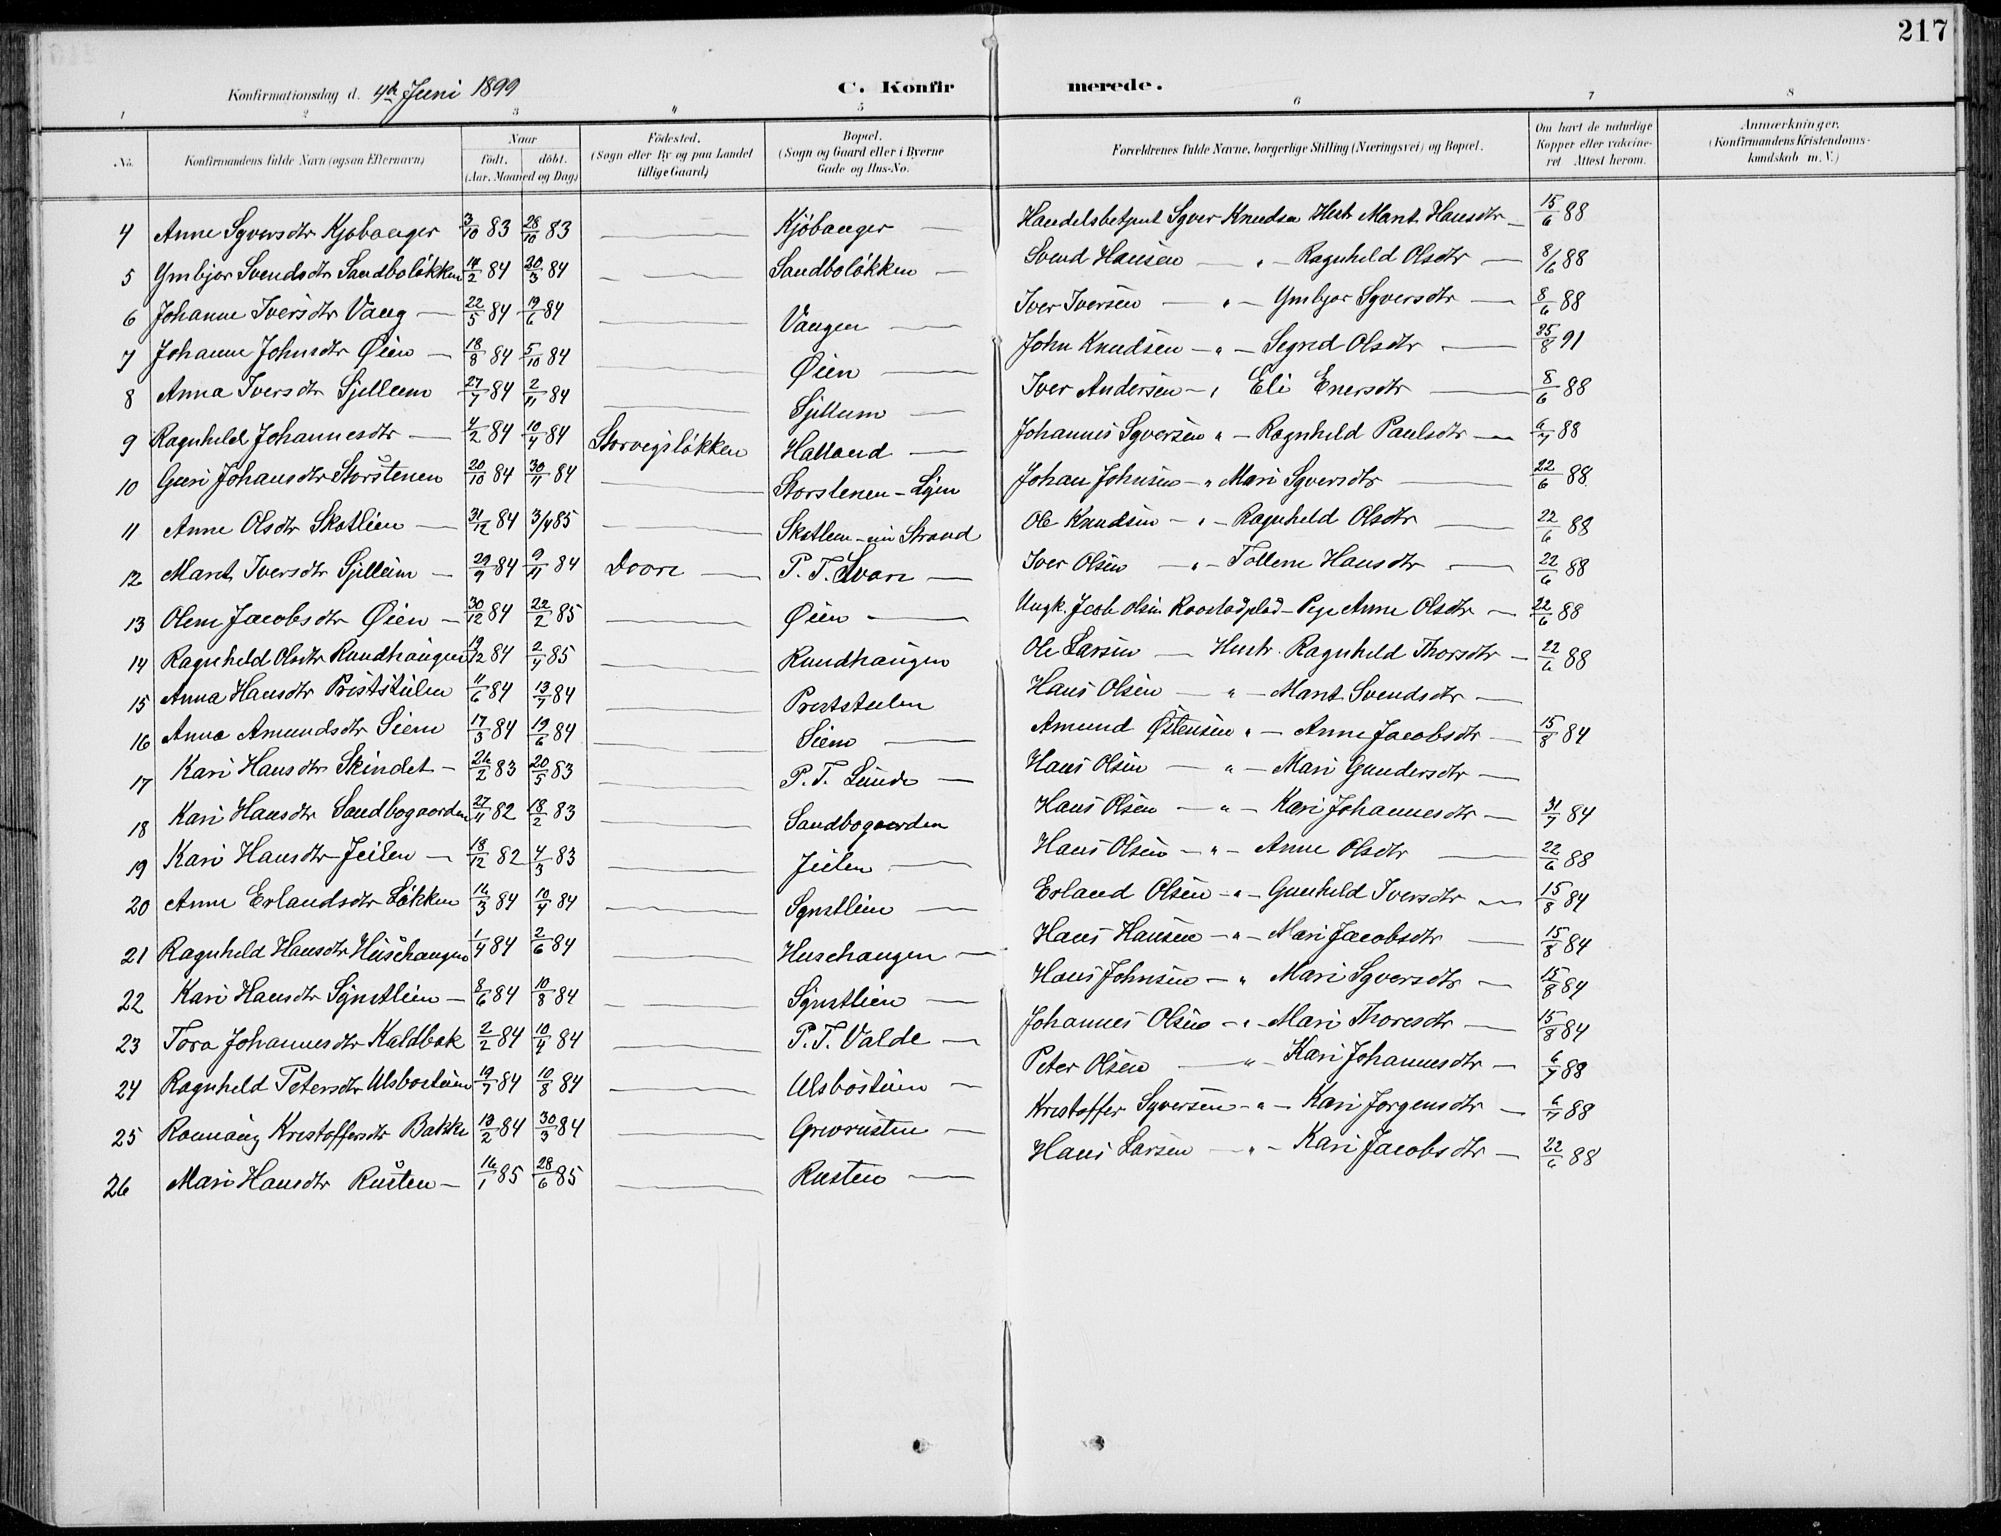 217
Konfirmationsdag d. 4de Juni 1899 C. Konfirmerede.
1 2 3 4 5 6 7 8
No. Konfirmandens fulde Navn (ogsaa Efternavn) Naar födt. döbt. (Aar, Maaned og Dag) Födested. (Sogn eller By og paa Landet tillige Gaard) Bopæl. (Sogn og Gaard eller i Byerne Gade og Hus-No. Forældrenes fulde Navne, borgerlige Stilling (Næringsvei) og Bopæl. Om havt de naturlige Kopper eller vakcineret. Attest herom. Anmærkninger. (Konfirmandens Kristendomskundskab m. V.)
4 Anne Syversdtr Kjøbanger 3/10 83 28/10 83 — Kjøbanger — Handelsbetjent Syver Knudsen Hustr Marit Hansdtr — 15/6 88
5 Ymbjør Svendsdtr Sandboløkken 14/2 84 20/3 84 — Sandboløkken — Svend Hansen — " — Ragnhild Olsdtr — 8/6 88
6 Johanne Iversdtr Vang — 22/5 84 19/6 84 — Vangen — Iver Iversen — " — Ymbjør Syversdtr — 8/6 88
7 Johanne Johnsdtr Øien — 18/8 84 5/10 84 — Øien — John Knudsen — " — Segred Olsdtr — 25/8 91
8 Anna Iversdtr Sjellum 27/7 84 2/11 84 — Sjellum — Iver Andersen — " Eli Enersdtr — 8/6 88
9 Ragnhild Johannesdtr — 4/2 84 10/4 84 Storvigsløkken Halland — Johannes Syversen " — Ragnhild Paulsdtr — 6/7 88
10 Guri Johansdtr Storstenen 20/10 84 30/11 84 — Storstenen — Johan Johnsen — " Mari Syversdtr — 22/6 88
11 Anne Olsdtr Skotlien — 31/12 84 3/4 85 — Skotlien — Strand Ole Knudsen — " — Ragnhild Olsdtr — 22/6 88
12 Marit Iversdtr Sjellum — 29/9 84 9/11 84 Dovre — P. T. Svare — Iver Olsen — " — Hansdtr — 22/6 88
13 Olene Jacobsdtr Øien — 30/12 84 22/2 85 — Øien — Ungk. Jacob Olsen — Pige Anne Olsdtr — 22/6 88
14 Ragnhild Olsdtr Rundhaugen 19/12 84 2/4 85 — Rundhaugen Ole Larsen — Hustr. Ragnhild Thorsdtr — 22/6 88
15 Anna Hansdtr Preststulen 11/6 84 13/7 84 — Preststulen Hans Olsen — " — Marit Svendsdtr —
16 Anna Amundsdtr Siem 17/3 84 19/6 84 — Siem — Amund Østensen " — Anne Jacobsdtr — 15/8 84
17 Kari Hansdtr Skindet — 26/2 83 20/5 83 — P. T. Lunde — Hans Olsen — " — Mari Gundersdtr —
18 Kari Hansdtr Sandbogaarden 27/11 82 18/2 83 — Sandbogaarden Hans Olsen — " — Kari Johannesdtr — 31/7 84
19 Kari Hansdtr Jeilen — 18/12 82 4/3 83 — Jeilen — Hans Olsen — " — Anne Olsdtr — 22/6 88
20 Anne Erlandsdtr Løkken 16/3 84 10/4 84 — Synstlien — Erland Olsen — " — Gunhild Iversdtr — 15/8 84
21 Ragnhild Hansdtr Husehaugen 1/4 84 2/6 84 — Husehaugen — Hans Hansen — " — Mari Jacobsdtr — 15/8 84
22 Kari Hansdtr Synstlien — 8/6 84 10/8 84 — Synstlien — Hans Johnsen — " Mari Syversdtr — 15/8 84
23 Tora Johannesdtr Kaldbak 2/2 84 10/4 84 — P. T. Valde — Johannes Olsen — " — Mari Thoresdtr — 15/8 84
24 Ragnhild Petersdtr Ulsbostuen 19/7 84 10/8 84 — Ulsbostuen — Peter Olsen — " — Kari Johannesdtr — 6/7 88
25 Rønnaug Kristoffersdtr Bakke 19/2 84 30/3 84 — Grevrusten — Kristoffer Syversen — " — Kari Jørgensdtr — 6/7 88
26 Mari Hansdtr Rusten — 16/1 85 28/6 85 — Rusten — Hans Larsen — " — Kari Jacobsdtr — 22/6 88